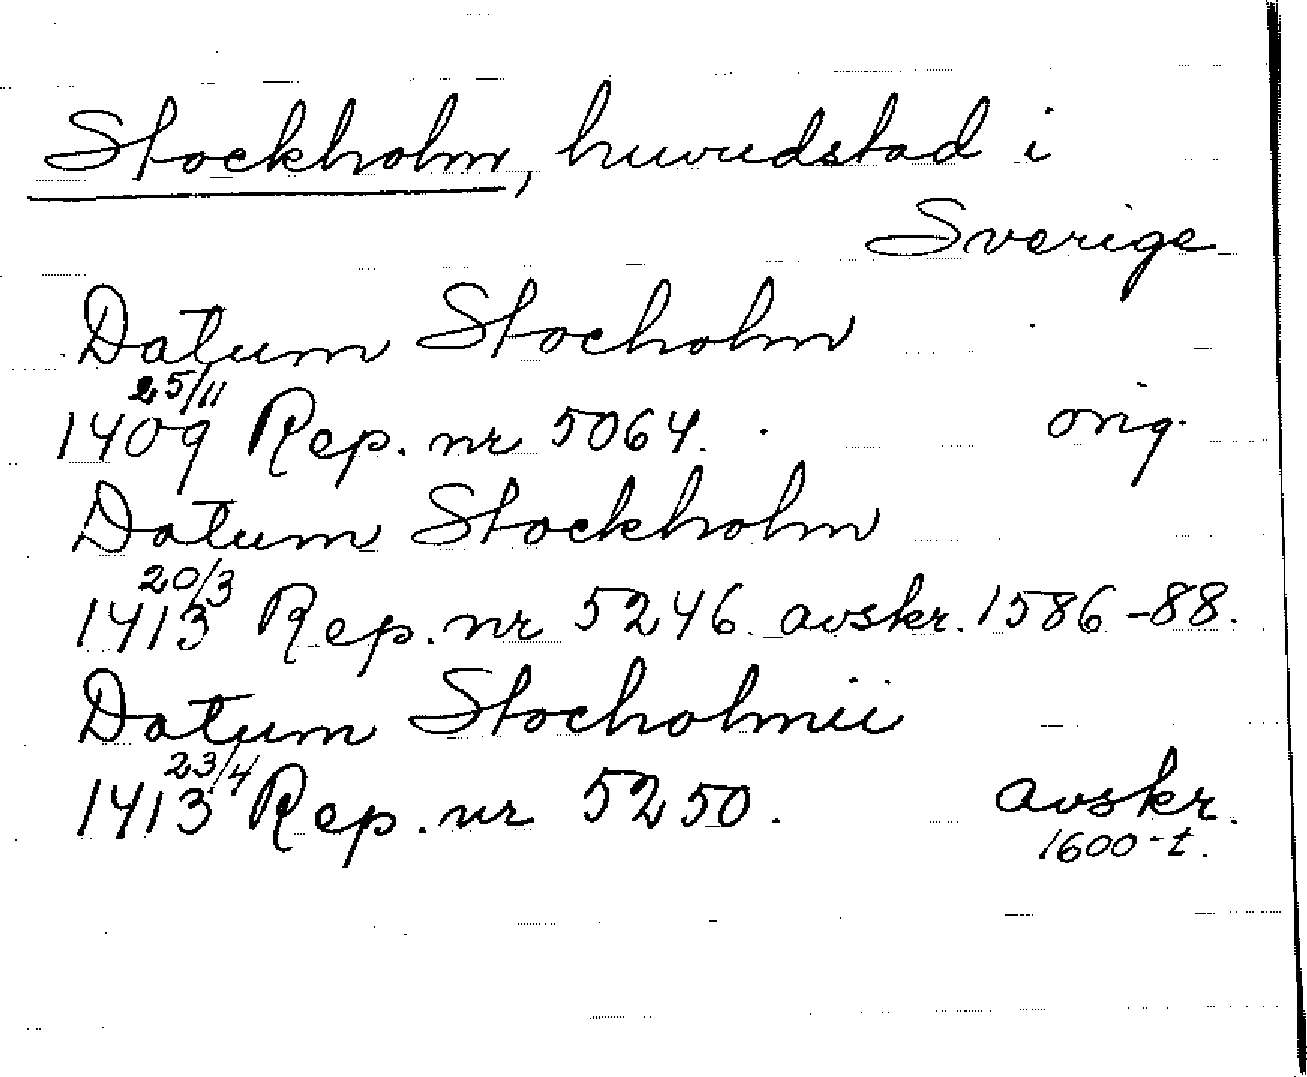 Stockholm, huvudstad i
Sverige
Datum Stocholm
25/11
1409 Rep. nr 5064. orig.
Datum Stockholm
20/3
1413 Rep. nr 5246. avskr. 1586-88.
Datum Stocholmii
23/4
1413 Rep. nr 5250. avskr.
1600-t.